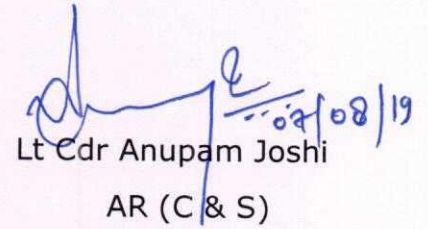 07/08/19
Lt Cdr Anupam Joshi
AR (C & S)